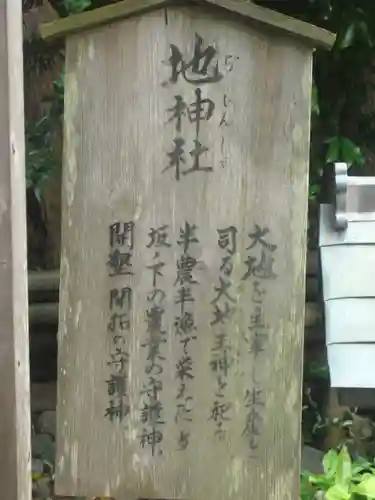 地神社
じじんしゃ
大地を主宰し生産を
司る大地主神を祀る
半農半漁で栄えた当
坂ノ下の農業の守護神、
開墾 開拓の守護神